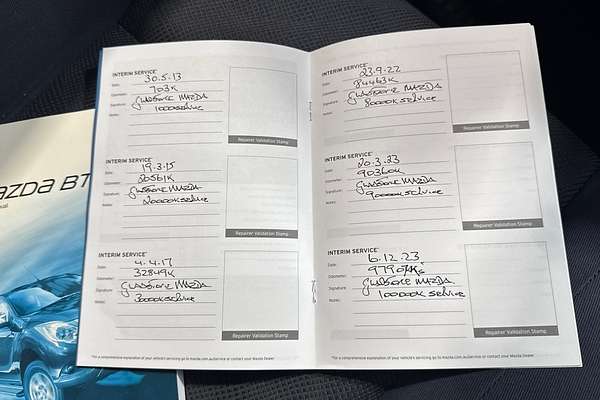 INTERIM SERVICE*
Date: 30.5.13
Odometer: 703K
Signature: GLADSTONE MAZDA
Notes: 1000 service
Repairer Validation Stamp
INTERIM SERVICE*
Date: 19.3.15
Odometer: 20561K
Signature: GLADSTONE MAZDA
Notes: 20000K service
Repairer Validation Stamp
INTERIM SERVICE*
Date: 4.4.17
Odometer: 32849K
Signature: GLADSTONE MAZDA
Notes: 30000K service
Repairer Validation Stamp
*For a comprehensive explanation of your vehicle's servicing go to mazda.com.au/service or contact your Mazda Dealer.
INTERIM SERVICE*
Date: 23.9.22
Odometer: 84463K
Signature: GLADSTONE MAZDA
Notes: 80000K service
Repairer Validation Stamp
INTERIM SERVICE*
Date: 20.3.23
Odometer: 90360K
Signature: GLADSTONE MAZDA
Notes: 90000K service
Repairer Validation Stamp
INTERIM SERVICE*
Date: 6.12.23
Odometer:
Signature: GLADSTONE MAZDA
Notes: 100000K service
Repairer Validation Stamp
*For a comprehensive explanation of your vehicle's servicing go to mazda.com.au/service or contact your Mazda Dealer.
azda BT